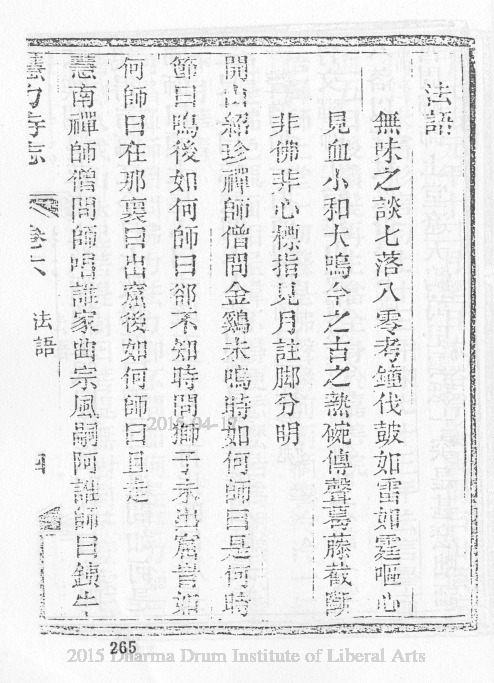 法語
無味之談七落八零考鐘伐鼓如雷如霆嘔心
見血小和大鳴今之古之熱碗傳聲葛藤截斷
非佛非心標指見月註脚分明
開山紹珍禪師僧問金鷄未鳴時如何師曰是何時
節曰鳴後如何師曰卻不知時問獅子未出窟時如
何師曰在那裏曰出窟後如何師曰且走
慧南禪師僧問師唱誰家曲宗風嗣阿誰師曰鐵牛
慧力寺志 卷六 法語 四
265
2015 Dharma Drum Institute of Liberal Arts